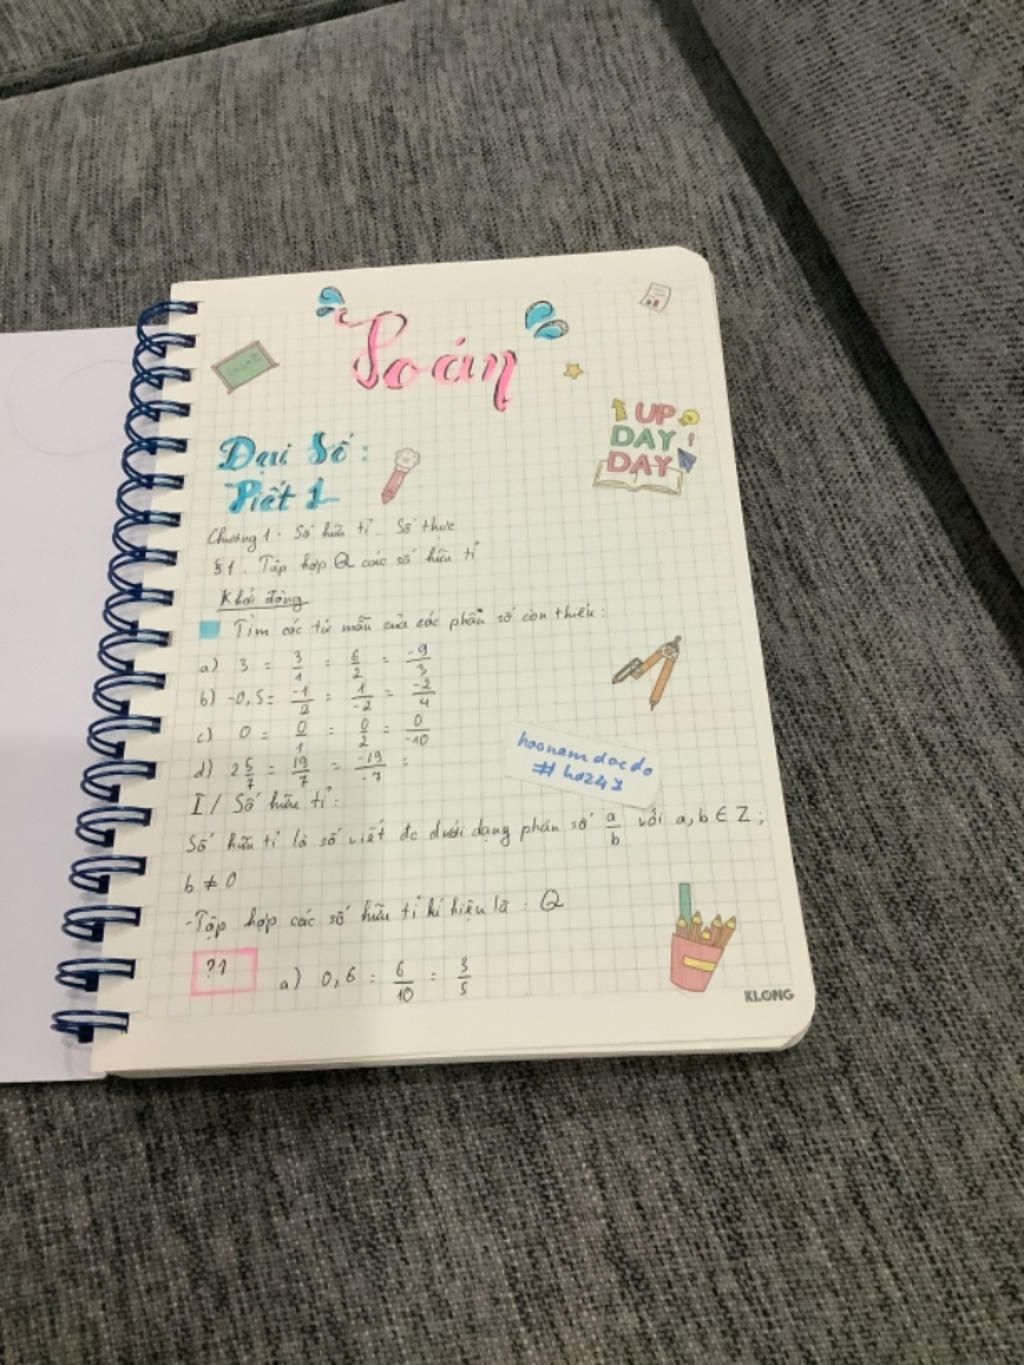 Toán
UP
DAY
DAY
Đại Số:
Tiết 1
Chương 1. Số hữu tỉ. Số thực
§1. Tập hợp Q các số hữu tỉ
Khởi động
Tìm các tử mẫu của các phân số còn thiếu:
a) 3 = 3/1 = 6/2 = -9/3
b) -0,5 = -1/2 = 1/-2 = -2/4
c) 0 = 0/1 = 0/2 = 0/-10
d) 2 5/7 = 19/7 = -19/-7 =
hoanamdocdo
#hd247
I/ Số hữu tỉ:
Số hữu tỉ là số viết đc dưới dạng phân số a/b với a, b ∈ Z;
b ≠ 0
-Tập hợp các số hữu tỉ kí hiệu là: Q
?1 a) 0,6 = 6/10 = 3/5
KLONG